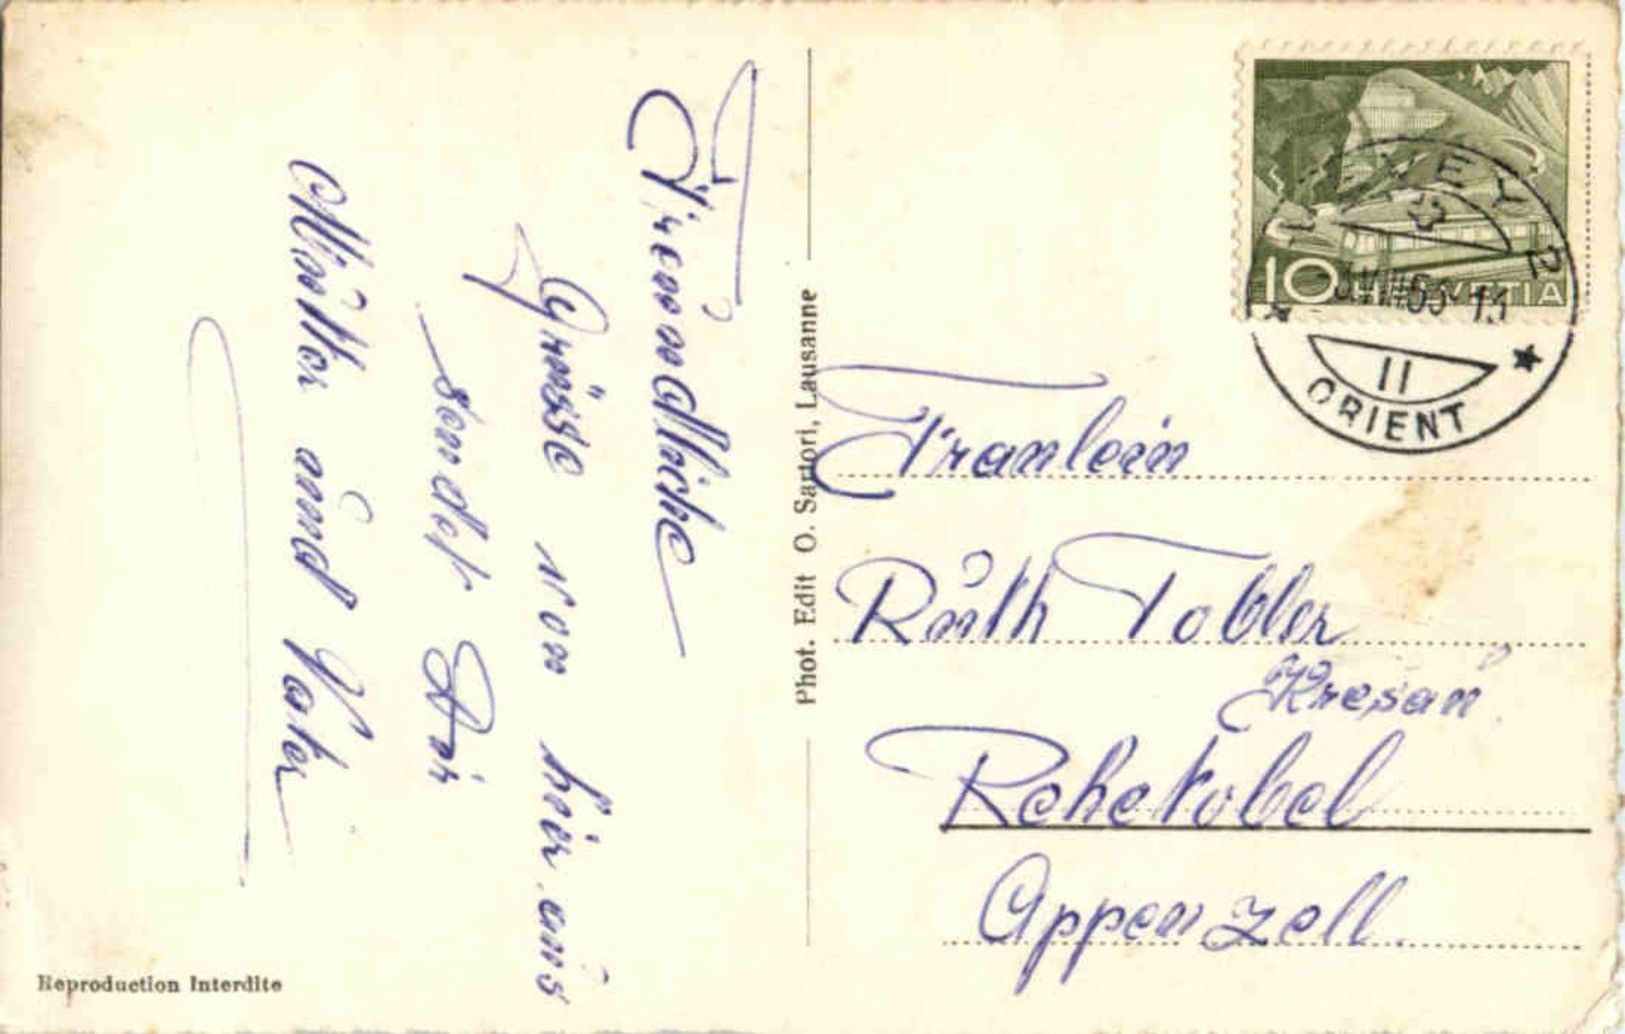 Freundliche
Grüsse von hier aus
sendet Dir
Mutter und Vater
Reproduction Interdite
Phot. Edit O. Sartori, Lausanne
10 HELVETIA
VEVEY 2
II
ORIENT
Fraulein
Ruth Tobler
Rehetobel
Appenzell.